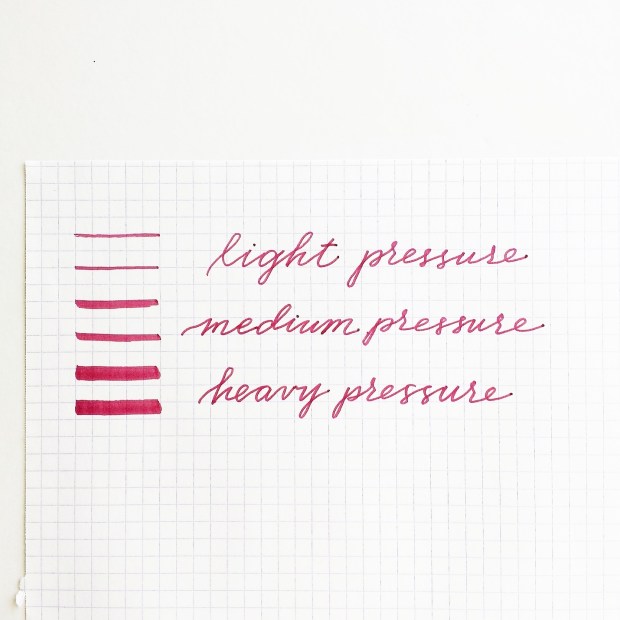 light pressure
medium pressure
heavy pressure